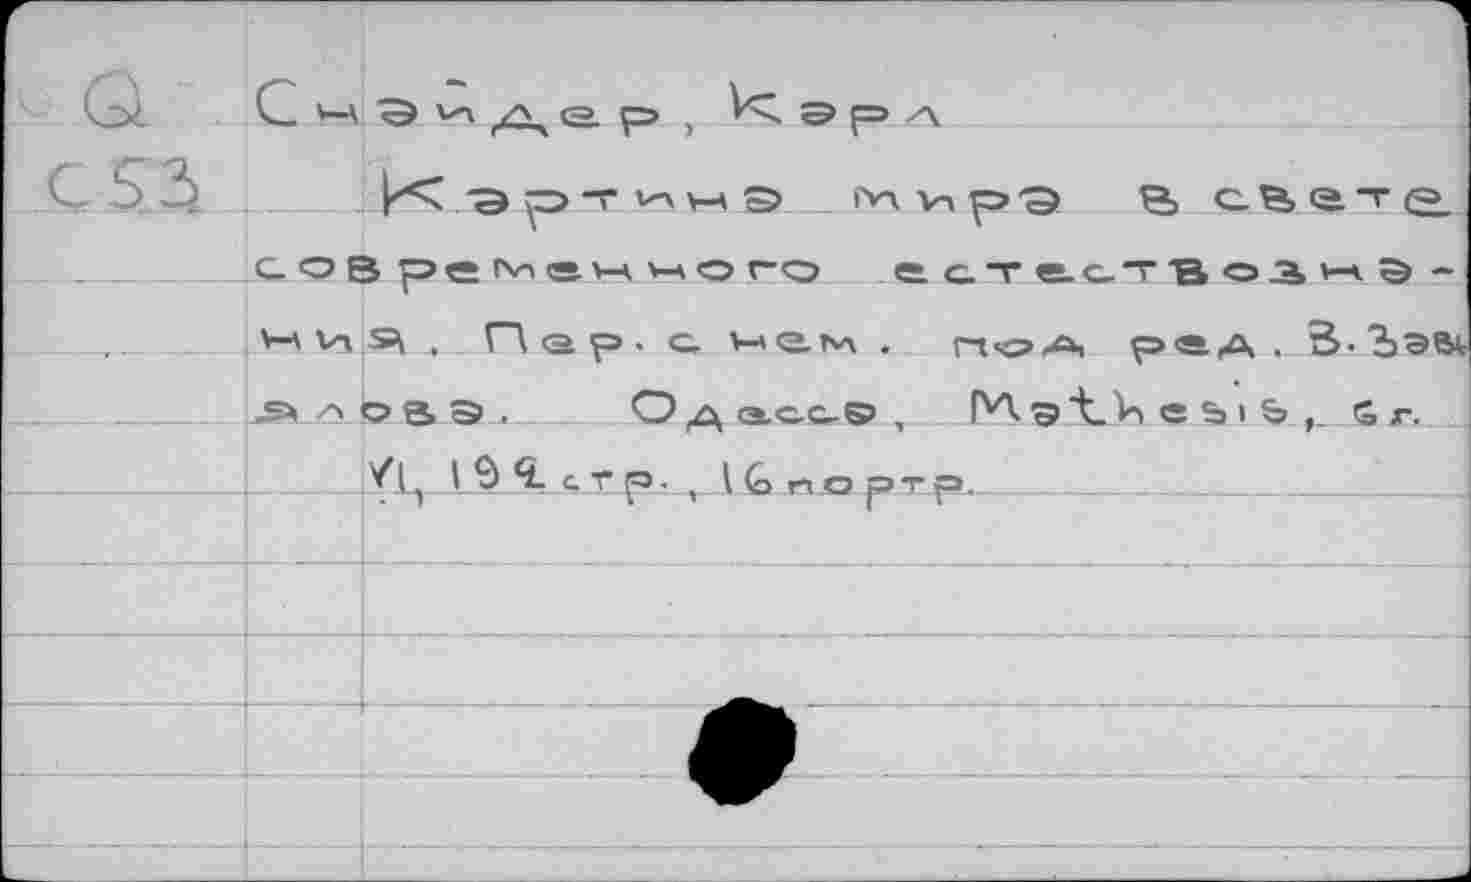 Q Снайдер, Карл
C53 Картина мира в свете
современного естествозна-
ния. Пер. с нем. под ред. В. Завь
ялова. Одесса, Mathesis, бг.
VI, 192 стр., 16 портр.